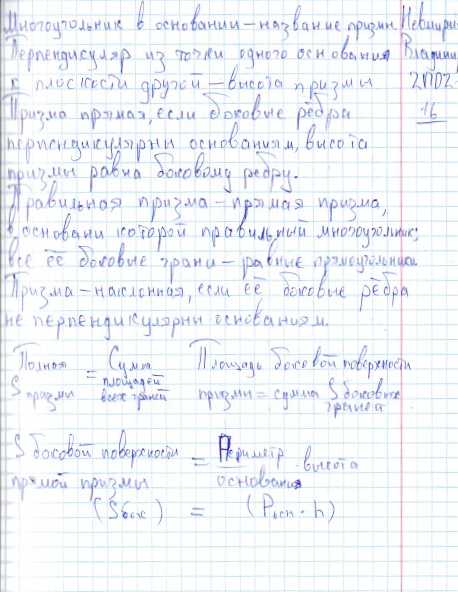 Многоугольник в основании – название призмы.
Перпендикуляр из точки одного основания
к плоскости другой – высота призмы
Призма прямая, если боковые рёбра
перпендикулярны основаниям, высота
призмы равна боковому ребру.
Правильная призма – прямая призма,
в основани которой правильный многоугольник;
все её боковые грани – равные прямоугольники
Призма – наклонная, если её боковые рёбра
не перпендикулярны основаниям.
Владимир
2ПД2-
16
Полная S призмы = Сумма площадей всех граней
Площадь боковой поверхности
призмы = сумма S боковых граней
S боковой поверхности прямой призмы = Периметр основания · высота
(Sбок) = (Pосн · h)